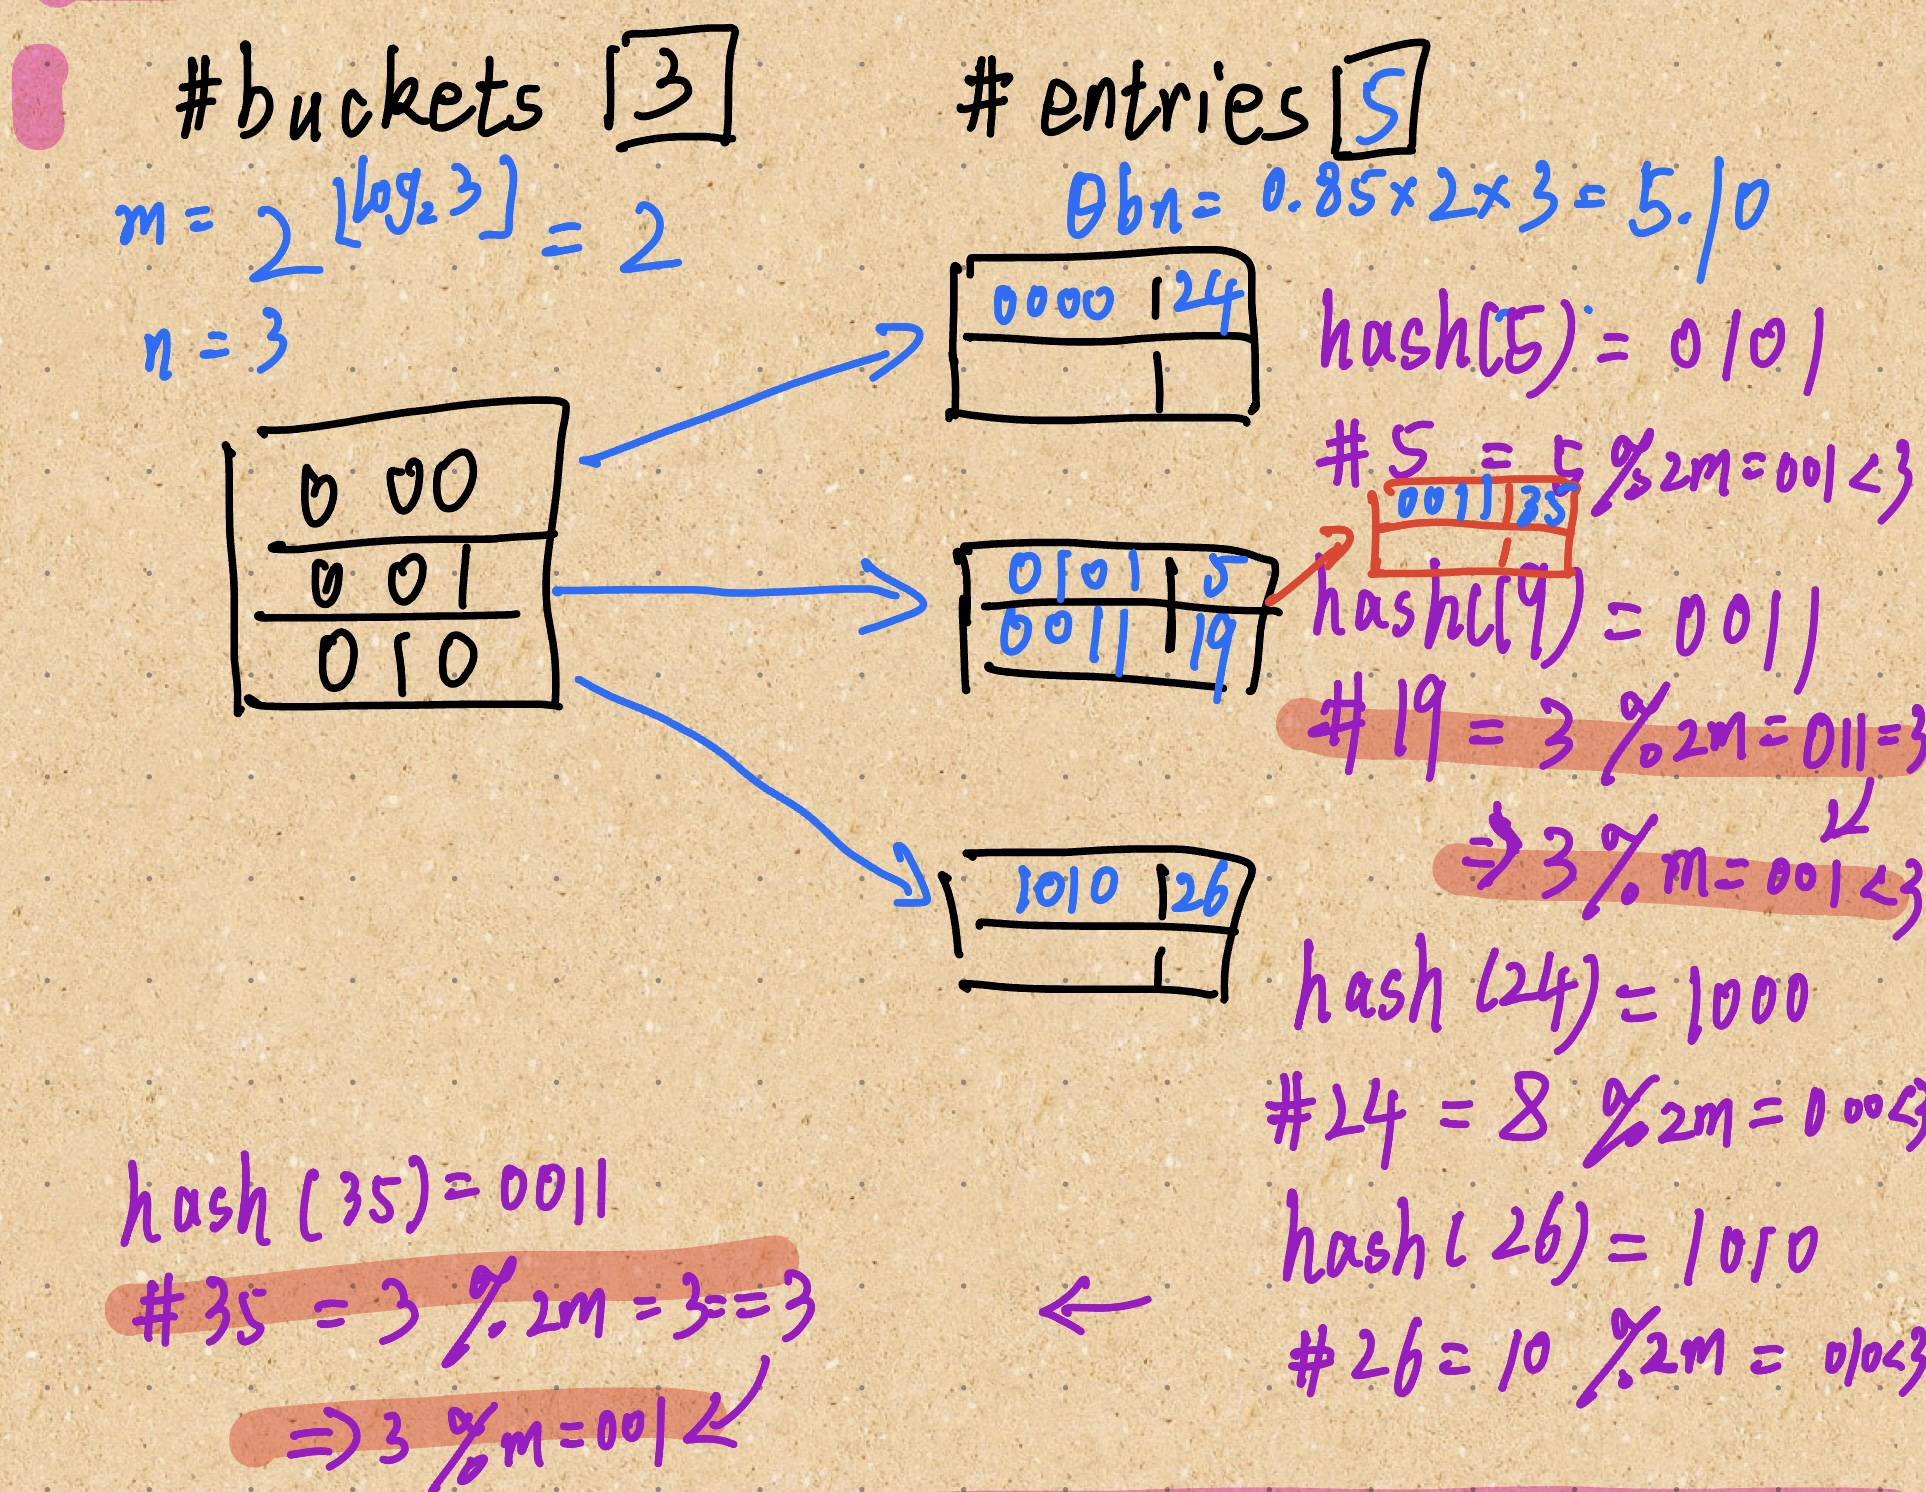 #buckets 3
# entries 5
m = 2^⌊log₂3⌋ = 2
θbn = 0.85×2×3 = 5.10
n = 3
0 00
0 01
0 1 0
0000 | 24
0101 | 5
0011 | 19
0011 | 35
1010 | 26
hash(5) = 0101
#5 = 5 % 2m = 001 < 3
hash(19) = 0011
#19 = 3 % 2m = 011 = 3
⇒ 3 % m = 001 < 3
hash (24) = 1000
#24 = 8 % 2m = 000 < 3
hash( 26) = 1010
#26 = 10 % 2m = 010<3
←
hash (35) = 0011
#35 = 3 % 2m = 3 == 3
⇒ 3 % m = 001